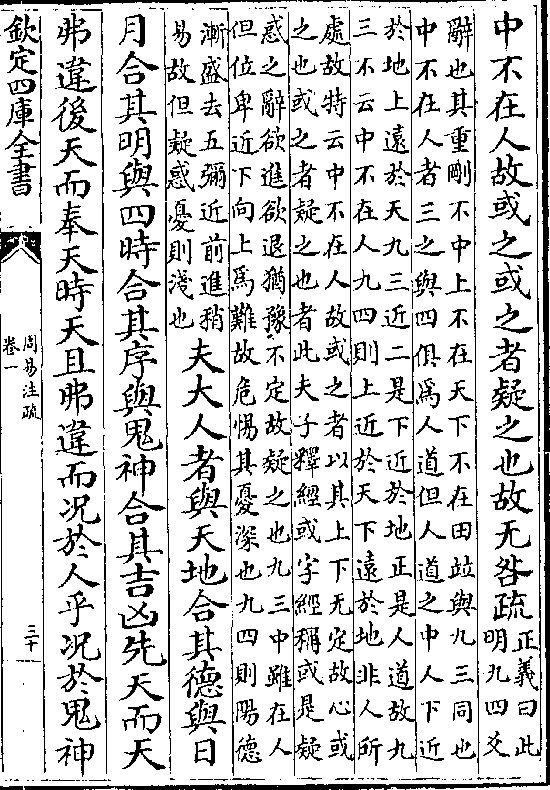 中不在人故或之或之者疑之也故无咎疏正義曰此
明九四爻
辭也其重剛不中上不在天下不在田竝與九三同也
中不在人者三之與四俱爲人道但人道之中人下近
於地上遠於天九三近二是下近於地正是人道故九
三不云中不在人九四則上近於天下遠於地非人所
處故特云中不在人故或之者以其上下无定故心或
之也或之者疑之也者此夫子釋經或字經稱或是疑
惑之辭欲進欲退猶豫不定故疑之也九三中雖在人
但位卑近下向上爲難故危惕其憂深也九四則陽德
漸盛去五彌近前進稍
易故但疑惑憂則淺也
夫大人者與天地合其德與日
月合其明與四時合其序與鬼神合其吉凶先天而天
弗違後天而奉天時天且弗違而况於人乎况於鬼神
欽定四庫全書
周易注疏
卷一
三十